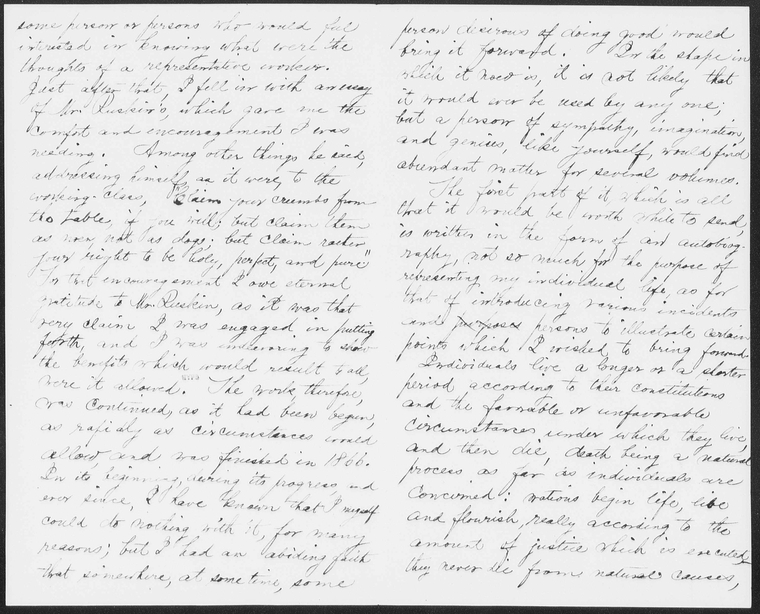 some person or persons who would feel
interested in knowing what were the
thoughts of a representative worker.
Just after that, I fell in with an essay
of Mr. Ruskin's, which gave me the
comfort and encouragement I was
needing. Among other things he said,
addressing himself, as it were, to the
working-class, "Claim your crumbs from
the table, if you will; but claim them
as men, not as dogs; but claim rather
your right to be holy, perfect, and pure"
For that encouragement I owe eternal
gratitude to Mr. Ruskin, as it was that
very claim I was engaged in putting
forth, and I was endeavoring to show
the benefits which would result to all,
were it allowed. The work, therefore,
was continued, as it had been begun,
as rapidly as circumstances would
allow and was finished in 1866.
In its beginning, during its progress, and
ever since, I have known that I myself
could do nothing with it, for many
reasons; but I had an abiding faith
that somewhere, at some time, some
person desirous of doing good would
bring it forward. In the shape in
which it now is, it is not likely that
it would ever be used by any one;
but a person of sympathy, imagination,
and genius, like yourself, would find
abundant matter for several volumes.
The first part of it, which is all
that it would be worth while to send,
is written in the form of an autobiog-
raphy, not so much for the purpose of
representing my individual life, as for
that of introducing various incidents
and purposes persons to illustrate certain
points which I wished to bring forward.
Individuals live a longer or a shorter
period according to their constitutions
and the favorable or unfavorable
circumstances under which they live
and then die, death being a natural
process as far as individuals are
concerned: nations begin life, live
and flourish, really according to the
amount of justice which is executed,
they never die from natural causes,